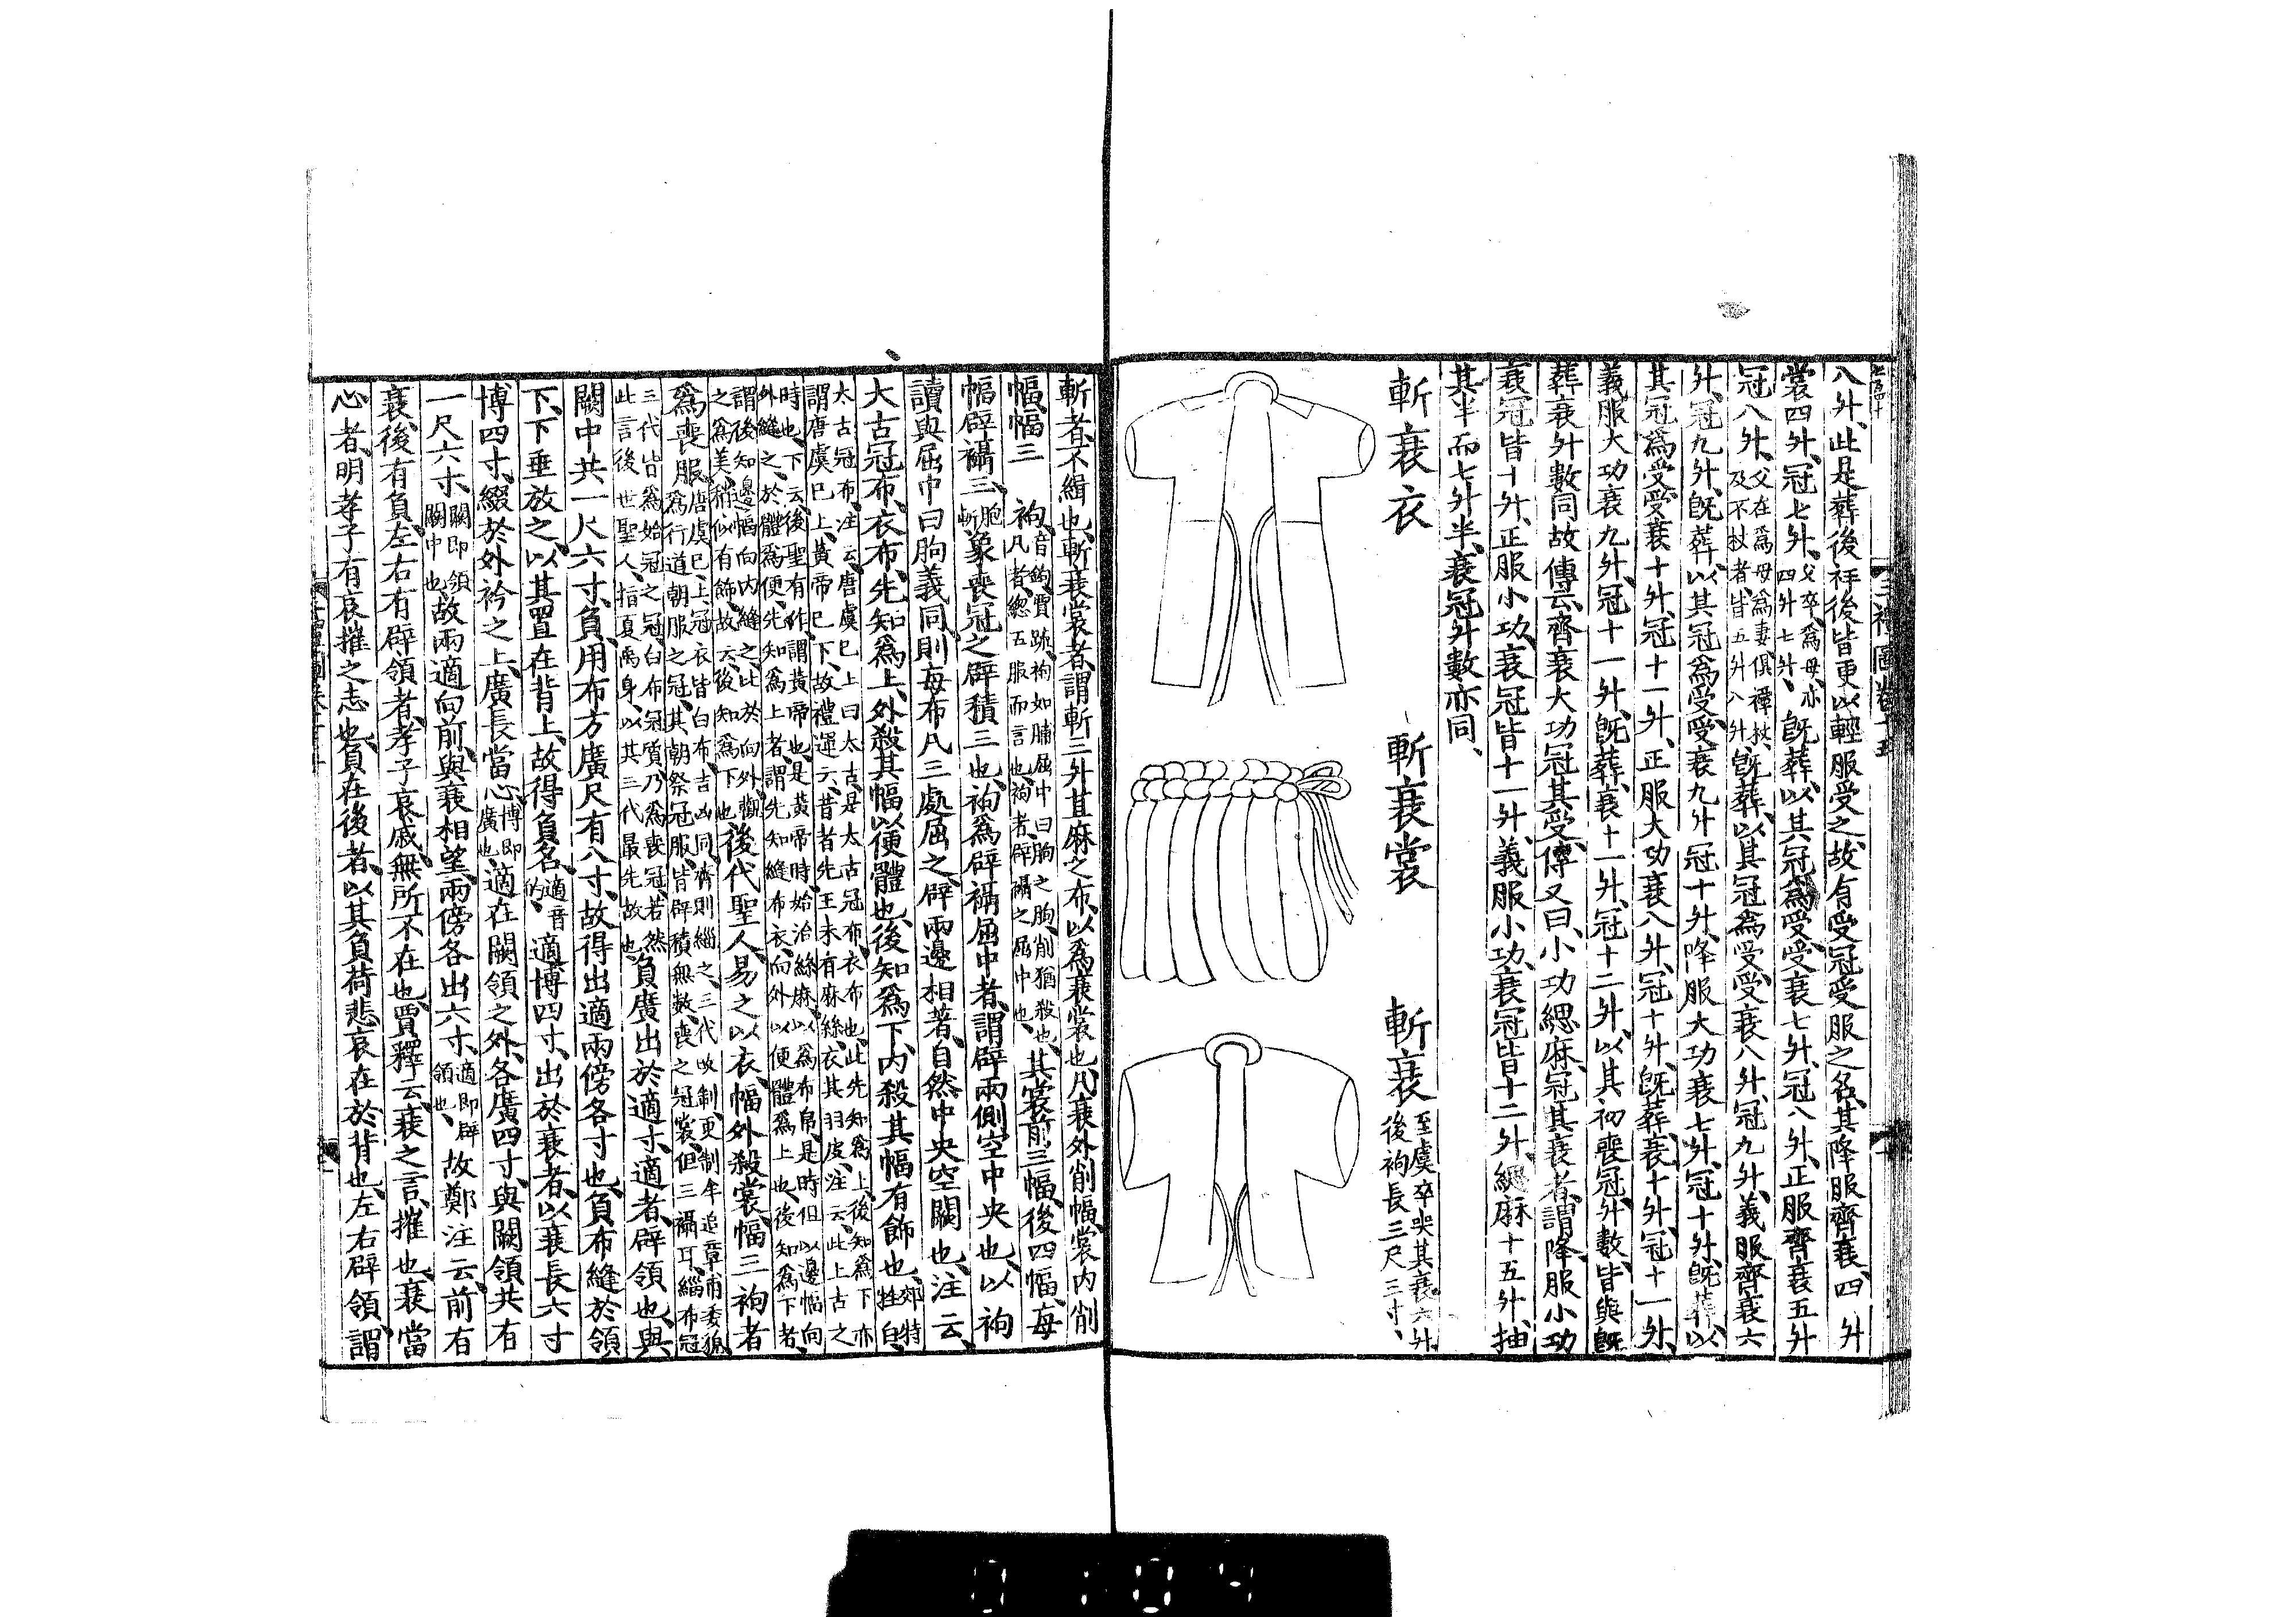 八升、此是葬後祥後皆更以輕服受之、故有受冠受服之名、其降服齊衰四升
裳四升、冠七升、父卒爲母、亦四升七升、旣葬、以其冠爲受、受衰七升、冠八升、正服齊衰五升
冠八升、父在爲母爲妻、俱禫杖、及不杖者、皆五升八升、旣葬、以其冠爲受、受衰八升、冠九升、義服齊衰六
升、冠九升、旣葬、以其冠爲受、受衰九升冠十升、降服大功衰七升、冠十升、旣葬、以
其冠爲受、受衰十升、冠十一升、正服大功衰八升、冠十升、旣葬、衰十升、冠十一升、
義服大功衰九升、冠十一升、旣葬、衰十一升、冠十二升、以其初喪冠升數、皆與旣
葬衰升數同、故傳云、齊衰大功冠其受、傳又曰、小功緦麻、冠其衰者、謂降服小功
衰冠皆十升、正服小功、衰冠皆十一升、義服小功、衰冠皆十二升、緦麻十五升、抽
其半而七升半、衰冠升數亦同、
斬衰衣
斬衰裳
斬衰 至虞卒哭其衰六升後袧長三尺三寸、
斬者、不緝也、斬衰裳者、謂斬三升苴麻之布、以爲衰裳也、凡衰外削幅、裳內削
幅、幅三 袧、音鉤、賈疏、袧如脯屈中曰朐之朐、削猶殺也、凡者、總五服而言也、袧者、辟襵之屈中也、其裳前三幅、後四幅、每
幅辟襵三、斬象喪冠之辟積三也、袧爲辟襵屈中者、謂辟兩側空中央也、以袧
讀與屈中曰朐義同、則每布凡三處屈之、辟兩邊相著、自然中央空闊也、注云、
大古冠布、衣布、先知爲上、外殺其幅、以便體也、後知爲下、內殺其幅、有飾也、郊特牲自、
太古冠布、注云、唐虞已上曰太古、是太古冠布、衣布也、此先知爲上、後知爲下亦
謂唐虞已上、黃帝已下、故禮運云、昔者先王未有麻絲、衣其羽皮、注云、此上古之
時也、下云後聖有作、謂黃帝也、是黃帝時始治絲麻、以爲布帛、是時但以邊幅向
外縫之、於體爲便、先知爲上者、謂先知縫布衣、向外以便體爲上也、後知爲下者、
謂後知邊幅向內縫之、比於向外觀之爲美、稍似有飾、故云後知爲下也、後代聖人易之、以衣幅外殺、裳幅三袧者
爲喪服、唐虞已上、冠衣皆白布、吉凶同、齊則緇之、三代改制、更制牟追章甫委貌爲行道朝服之冠、其朝祭冠服、皆辟積無數、喪之冠裳但三襵耳、緇布冠
三代皆爲始冠之冠、白布冠質、乃爲喪冠、若然此言後世聖人、指夏禹身、以其三代最先故也、負廣出於適寸、適者、辟領也、與
闕中共一尺六寸、負、用布方廣尺有八寸、故得出適兩傍各寸也、負布縫於領
下、下垂放之、以其置在背上、故得負名、適音的、適博四寸、出於衰者、以衰長六寸
博四寸、綴於外衿之上、廣長當心、博即廣也、適在闕領之外、各廣四寸、與闕領共有
一尺六寸、闕即領闕中也、故兩適向前、與衰相望、兩傍各出六寸、適即辟領也、故鄭注云、前有
衰、後有負、左右有辟領者、孝子哀戚無所不在也、賈釋云、衰之言、摧也、衰當
心者、明孝子有哀摧之志也、負在後者、以其負荷悲哀在於背也、左右辟領、謂